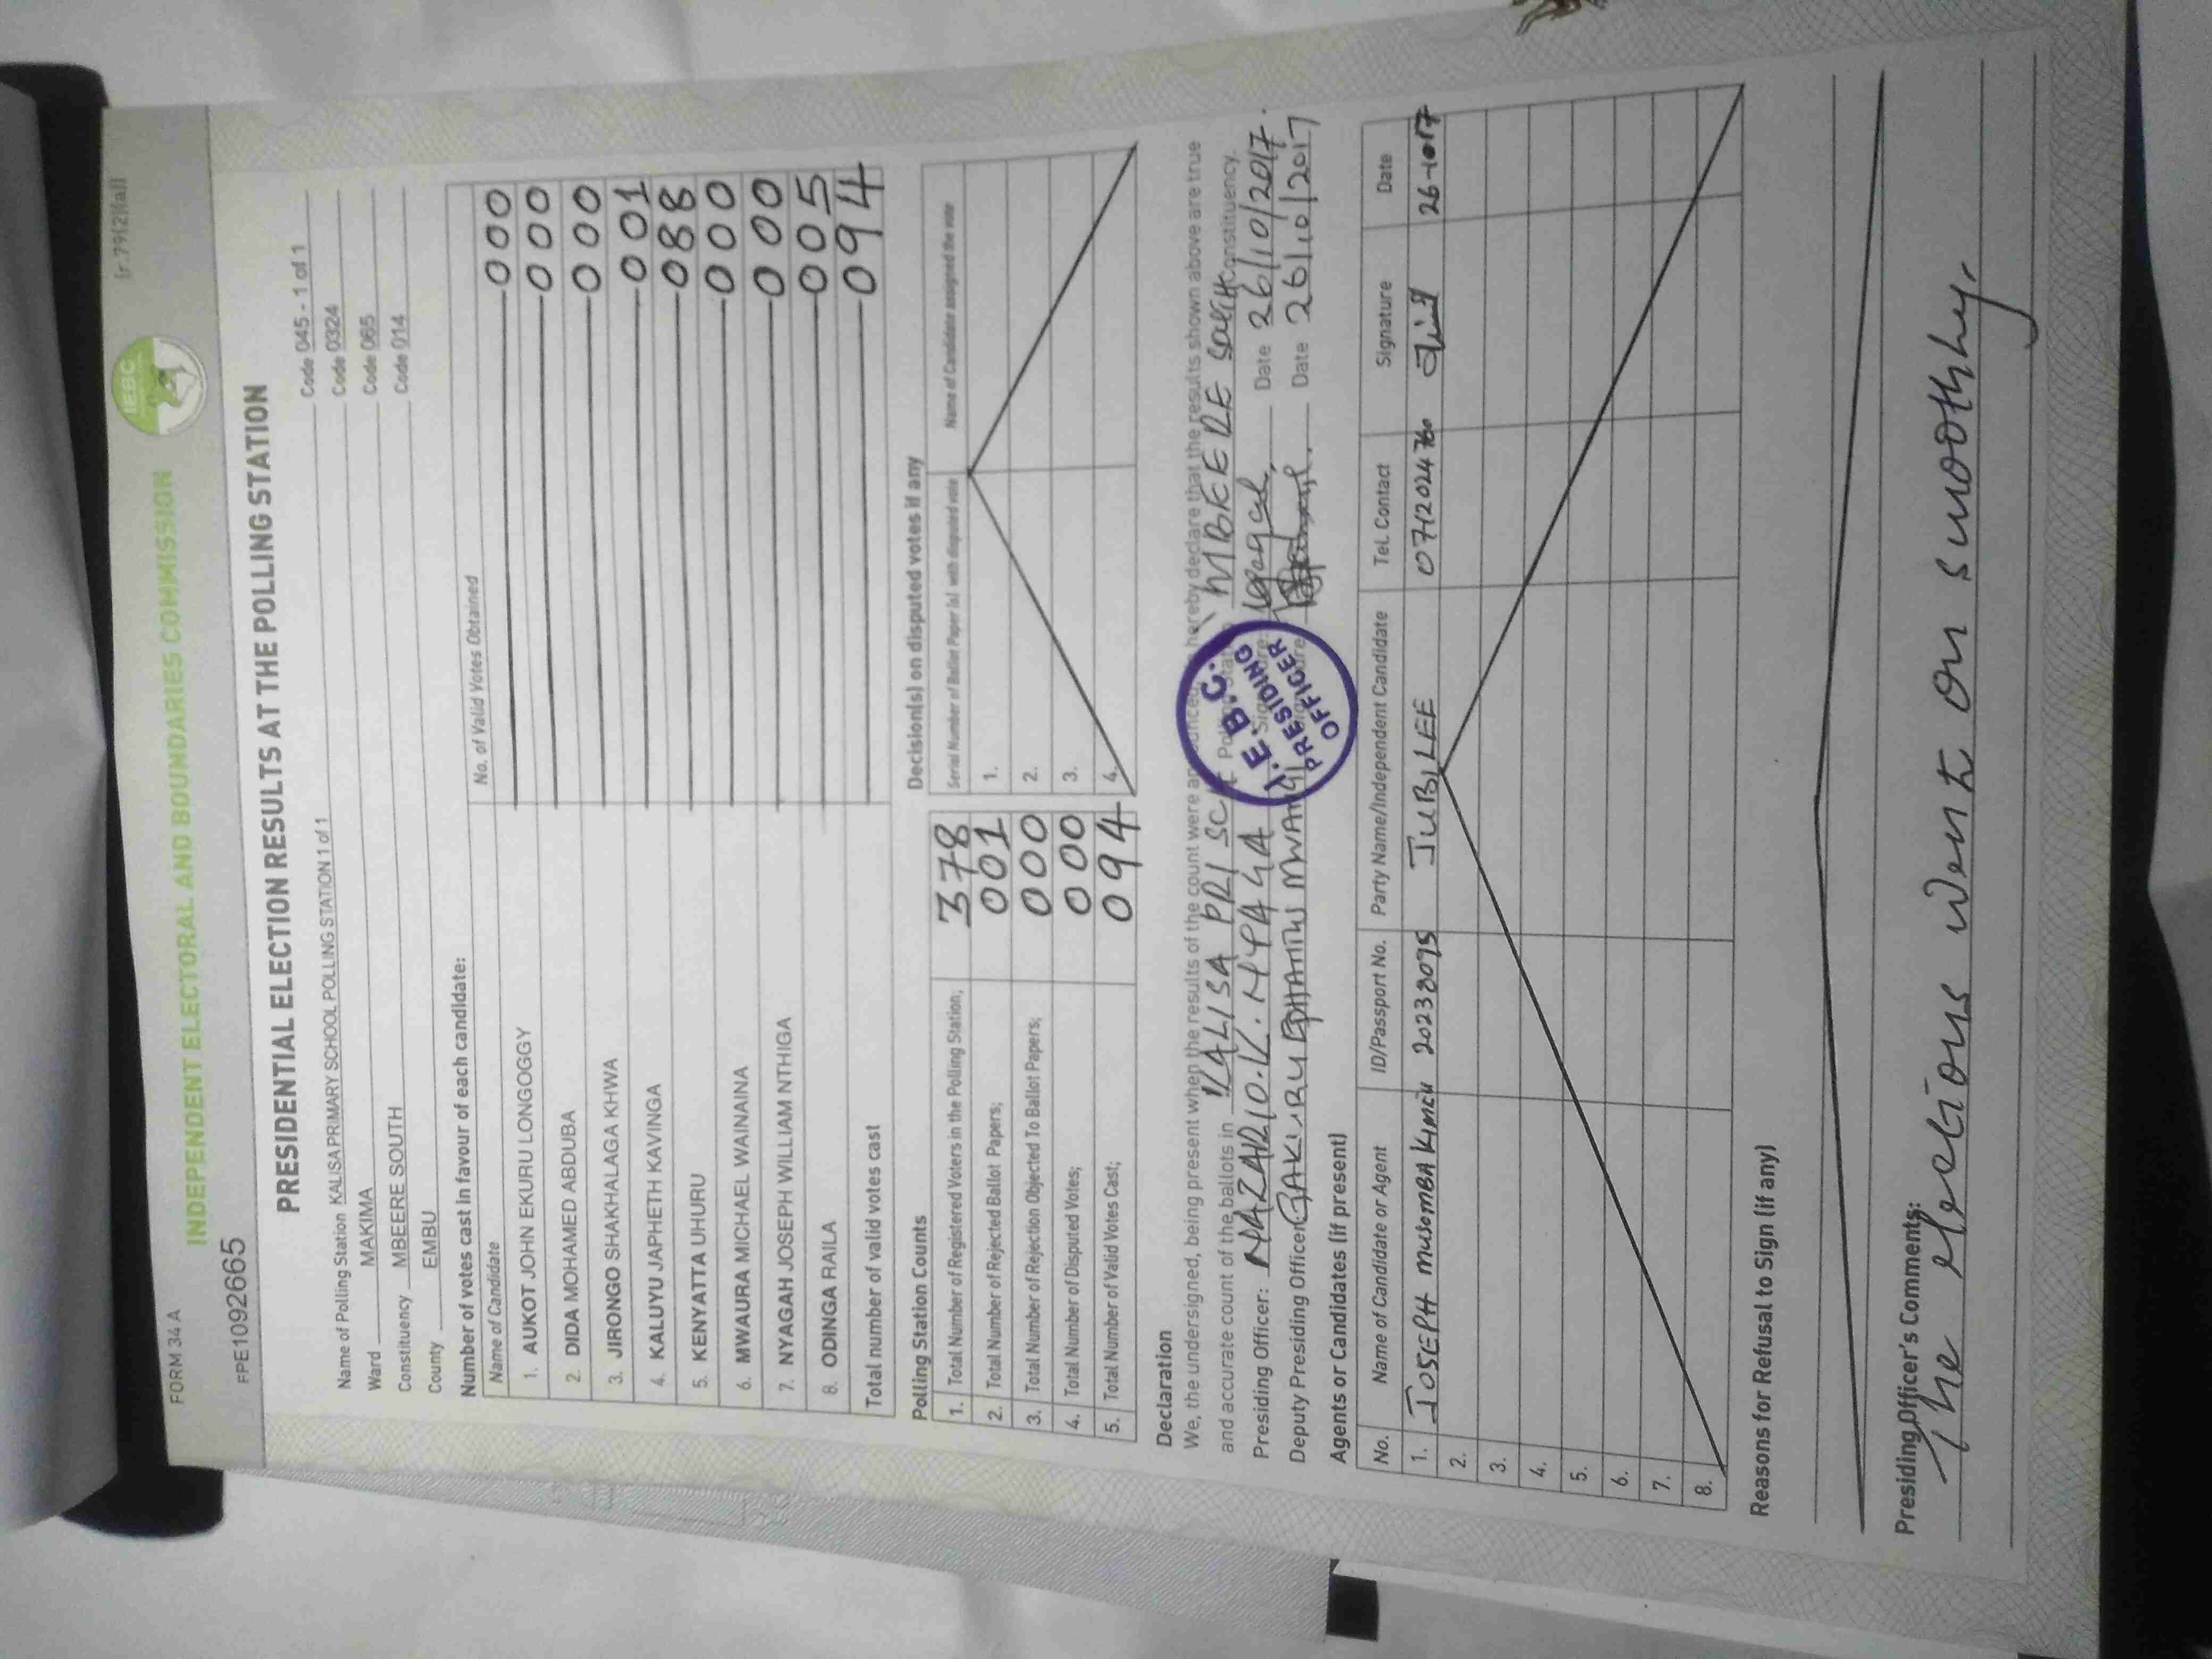 FORM 34 A
[r.79(2)(a)]
INDEPENDENT ELECTORAL AND BOUNDARIES COMMISSION
IEBC
FPE1092665
PRESIDENTIAL ELECTION RESULTS AT THE POLLING STATION
Name of Polling Station KALISA PRIMARY SCHOOL POLLING STATION 1 of 1 Code 045 - 1 of 1
Ward MAKIMA Code 0324
Constituency MBEERE SOUTH Code 065
County EMBU Code 014
Number of votes cast in favour of each candidate:
Name of Candidate No. of Valid Votes Obtained
1. AUKOT JOHN EKURU LONGOGGY 000
2. DIDA MOHAMED ABDUBA 000
3. JIRONGO SHAKHALAGA KHWA 000
4. KALUYU JAPHETH KAVINGA 001
5. KENYATTA UHURU 088
6. MWAURA MICHAEL WAINAINA 000
7. NYAGAH JOSEPH WILLIAM NTHIGA 000
8. ODINGA RAILA 005
Total number of valid votes cast 094
Polling Station Counts
1. Total Number of Registered Voters in the Polling Station; 378
2. Total Number of Rejected Ballot Papers; 001
3. Total Number of Rejection Objected To Ballot Papers; 000
4. Total Number of Disputed Votes; 000
5. Total Number of Valid Votes Cast; 094
Decision(s) on disputed votes if any
Serial Number of Ballot Paper (s) with disputed vote Name of Candidate assigned the vote
1.
2.
3.
4.
Declaration
We, the undersigned, being present when the results of the count were announced, hereby declare that the results shown above are true
and accurate count of the ballots in KALISA PRI SCH Polling Station MBEERE South Constituency.
Presiding Officer: NAZARIO.K. NYAGA Signature: Date 26/10/2017.
Deputy Presiding Officer: GAKURU EPHANTUS MWANGI Signature Date 26/10/2017
I.E.B.C.
PRESIDING
OFFICER
Agents or Candidates (if present)
No. Name of Candidate or Agent ID/Passport No. Party Name/Independent Candidate Tel. Contact Signature Date
1. JOSEPH MUSOMBA 20238095 JUBILEE 26-10-17
2.
3.
4.
5.
6.
7.
8.
Reasons for Refusal to Sign (if any)
Presiding Officer's Comments:
The elections went on smoothly.